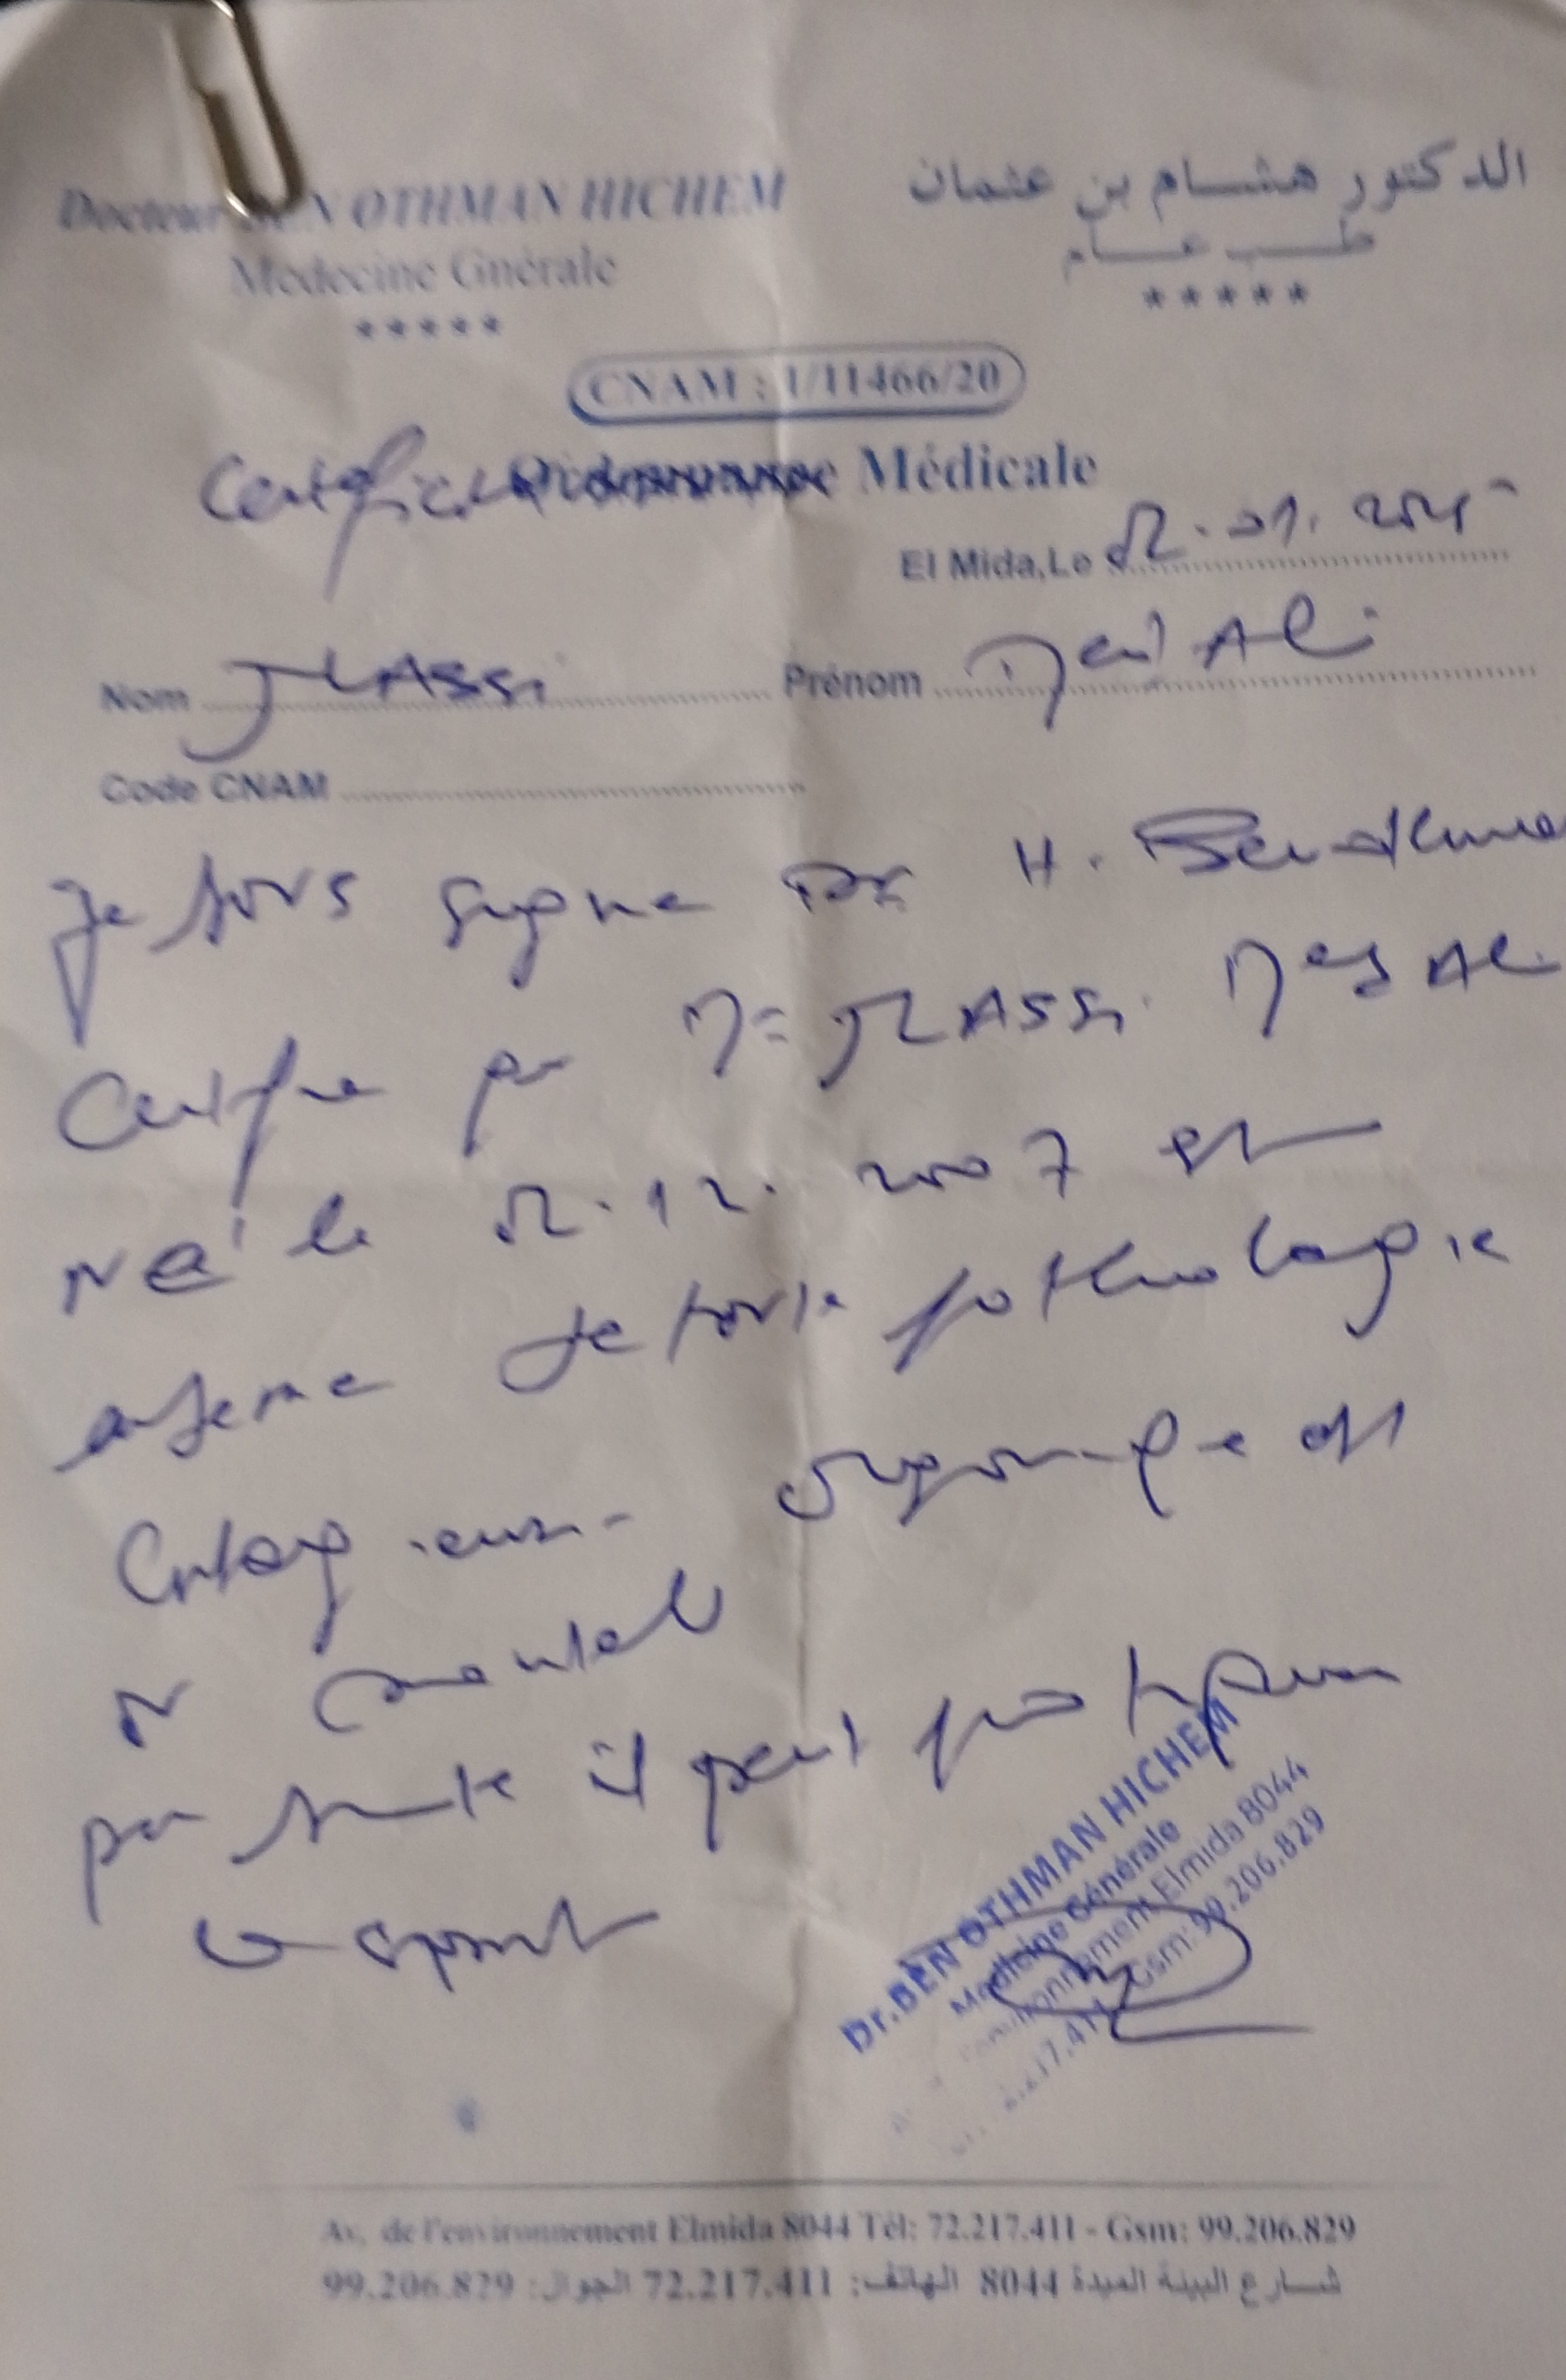 Docteur BEN OTHMAN HICHEM
Médecine Gnérale
*****
الدكتور هشام بن عثمان
طب عام
*****
CNAM : 1/11466/20
Certificat Ordonnance Médicale
El Mida,Le 02.01.2025
Nom JLASSi Prénom Med Ali
Code CNAM
Je sous signe Dr H. Ben othmen
Certifie que Mr JLASSi Med Ali
né le 02.12.2007 est
indemne de toute pathologie
Contagieuse organique et
ou mentale
par suite il peut pratiquer
le sport
Dr.BEN OTHMAN HICHEM
Medicine Générale
environnement Elmida 8044
217.411 Gsm: 99.206.829
Av. de l'environnement Elmida 8044 Tél: 72.217.411 - Gsm: 99.206.829
شارع البيئة الميدة 8044 الهاتف: 72.217.411 الجوال: 99.206.829